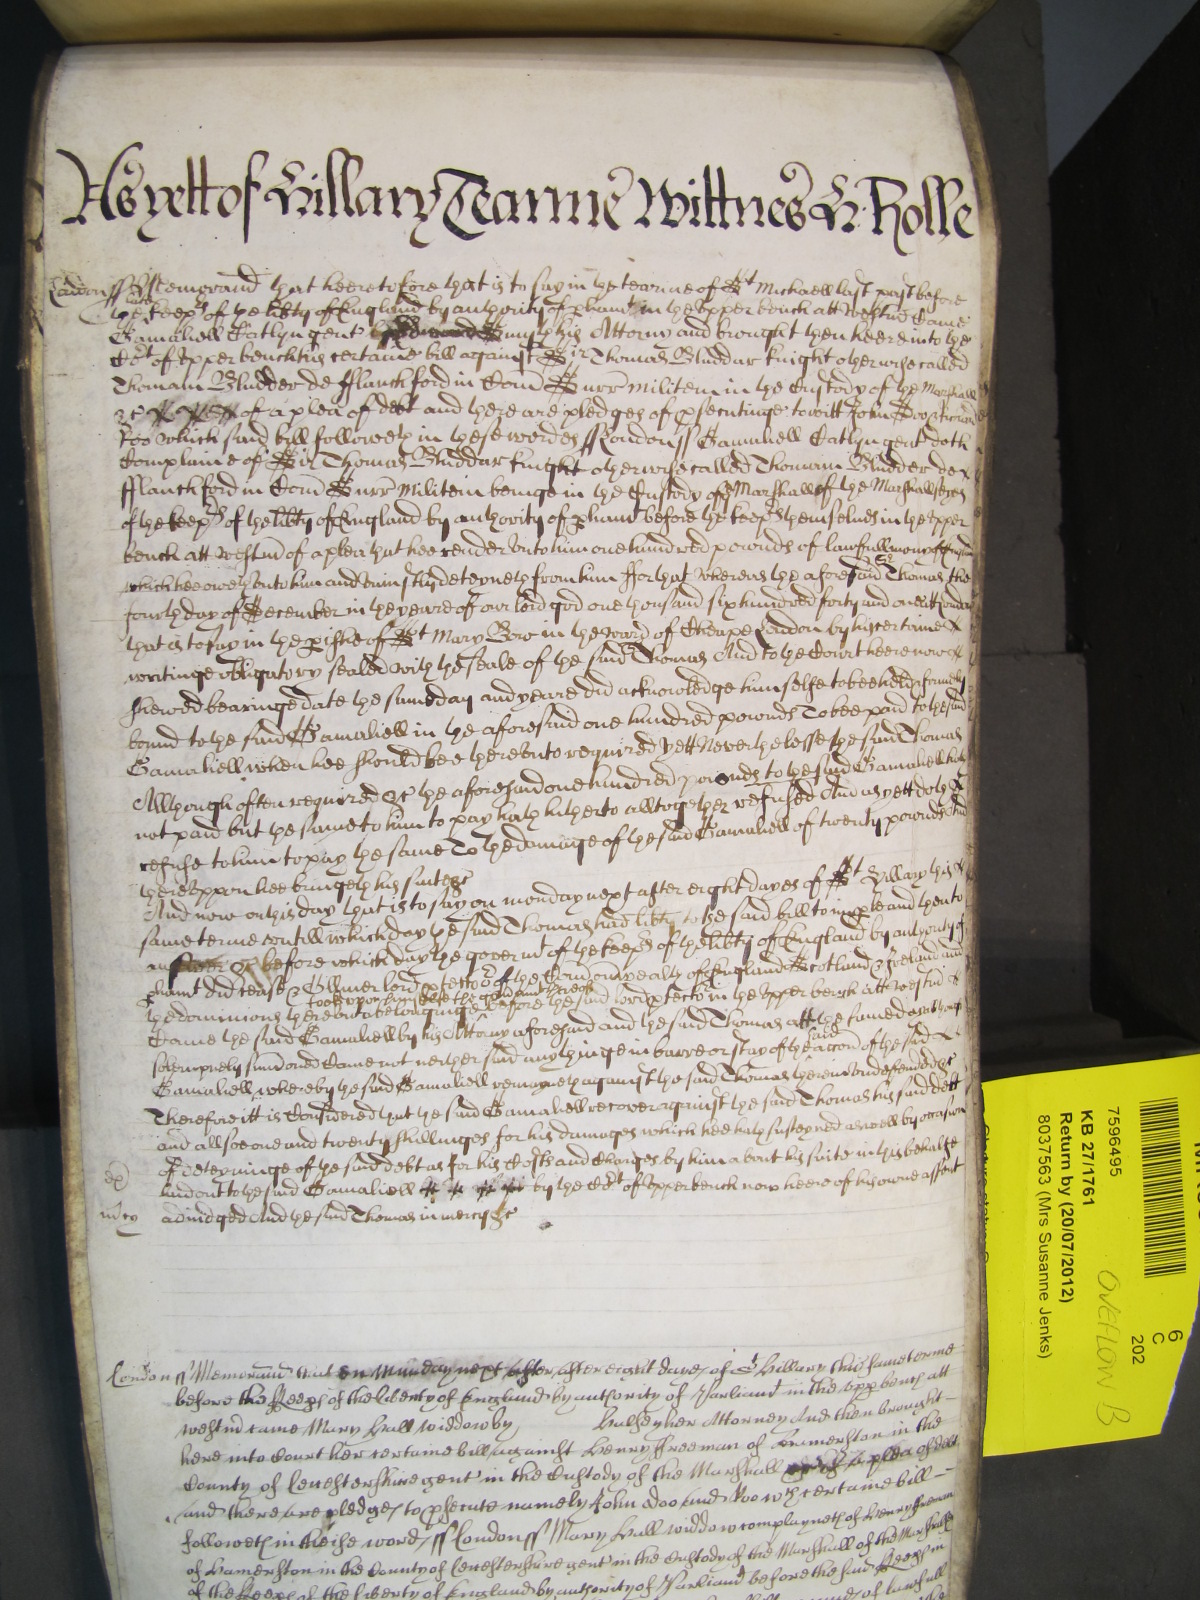 As yett of Hillary Tearme Wittnes H: Rolle
London ss Memorand that heeretofore that is to say in the tearme of St Michaell last past before
the late keeprs of the libty of England by authority of pliamt in the Upper bench att Westmr Came
Gamaliell Catlyn gent by Smyth his Attorny and brought then heere into the
Cort of Upper bench his certaine bill against Sir Thomas Bluddar knight otherwise called
Thomam Bludder de fflanchford in Com Surr militem in the Custody of the Marshall
&c of a plea of debt and there are pledges of psecutinge to witt John Doo & Richard
Roo which said bill followeth in these wordes ss London ss Gamaliell Catlyn gent doth
Complaine of Sir Thomas Bluddar knight otherwise called Thomam Bludder de
fflanchford in Com Surr militem beinge in the Custody of ye Marshall of the Marshallsyes
of the keeprs of the libty of England by authority of pliamt before the keeprs themselves in the Upper
bench att Westmr of a plea that hee render unto him one hundred pounds of lawfull mony of England
which hee oweth unto him and uniustly deteyneth from him ffor that whereas the aforesaid Sr Thomas the
fourth day of December in the yeare of our lord god one thousand six hundred forty and one att London
that is to say in the pishe of St Mary Bow in the ward of Cheape London by his certaine
writinge obligatory sealed with the seale of the said Thomas And to the Court heere now
shewed bearinge date the same day and yeare did acknowledge himselfe to bee held & firmely
bound to the said Gamaliell in the aforesaid one hundred pounds To bee paid to the said
Gamaliell when hee should bee thereunto required Yett Neverthelesse the said Thomas
Allthough often required &c the aforesaid one hundred pounds to the said Gamaliell hath
not paid but the same to him to pay hath hitherto alltogether refused And as yett doth
refuse to him to pay the same To the damage of the said Gamaliell of twenty pounds And
thereuppon hee bringeth his suite &c
And now on this day that is to say on monday next after eight dayes of St Hillary this
same terme untill which day the said Thomas had libty to the said bill to imple and then to
answer &c before which day the govermt of the keeprs of the libty of England by authority of
pliamt did cease & Oliver lord ptector of the Comonwealth of England Scotland & Ireland and
the dominions thereunto belonginge
tooke upon himselfe the govermt thereof
before the said lord ptector in the Upper bench att Westmr
Came the said Gamaliell by his Attorny aforesaid and the said Thomas att the same day although
solempnely sumoned Came not neither said any thinge in barre or stay of the said accon of the said
Gamaliell whereby the said Gamaliell remayneth against the said Thomas therein undefended &c
Therefore itt is Considered that the said Gamaliell recover against the said Thomas his said debt
and allsoe one and twenty shillinges for his damages which hee hath susteyned aswell by occasion
of deteyninge of the said debt as for his Costs and Charges by him about his suite in this behalfe
laid out to the said Gamaliell by the Cort of Upper bench now heere of his owne assent
adiudged And the said Thomas in mercy &c
mcy
London ss Memorand that on Munday next after eight dayes of St Hillary this same terme
before the Keeps of the liberty of England by authority of Parliamt in the upp bench att
westmr came Mary Hall widdow by Halsey her Attorney And then brought
here into Court her certaine bill against Henry ffreeman of Hamerston in the
County of Leuchstershire gent in the Custody of the Marshall of a plea of debt
and there are pledges to psecute namely John Doo and Roo wch certaine bill
followeth in theise words ss London ss Mary Hall widdow complayneth of Henry ffreeman
of Hamerston in the County of Leuchstershire gent in the Custody of the Marshall of the Marshalsey
of the Keeps of the liberty of England by authority of Parliamt before the said Keeps in
of lawfull
6
C
202
7596495
KB 27/1761
Return by (20/07/2012)
8037563 (Mrs Susanne Jenks)
OVEFLOW B